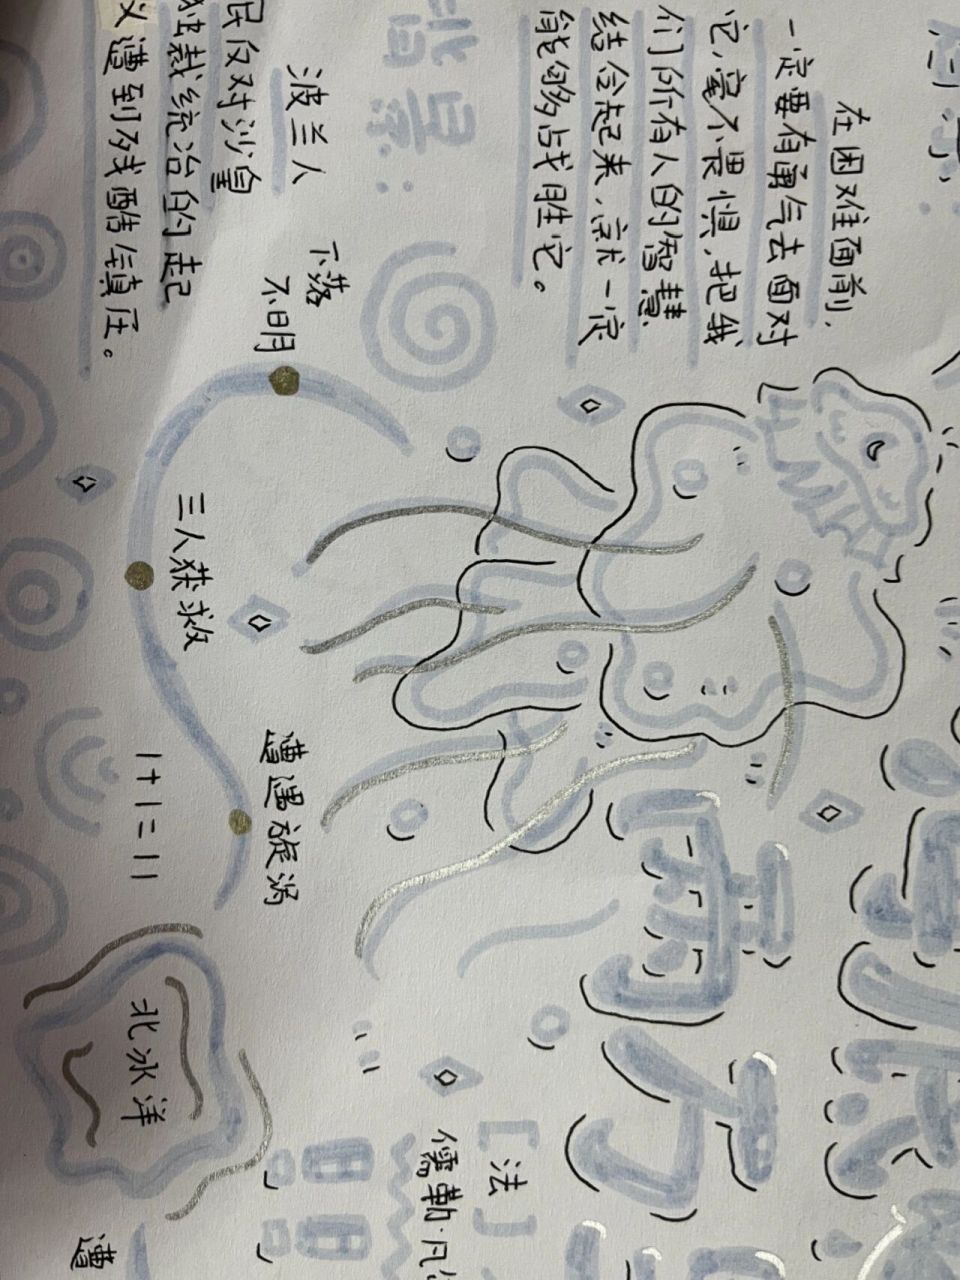 在困难面前,
一定要有勇气去面对
它,毫不畏惧,把我
们所有人的智慧
结合起来,就一定
能够战胜它。
背景:
波兰人
民反对沙皇
独裁统治的起
义遭到残酷镇压。
下落
不明
三人获救
遭遇旋涡
1+1=11
北冰洋
两万
[法]
儒勒·凡
遭